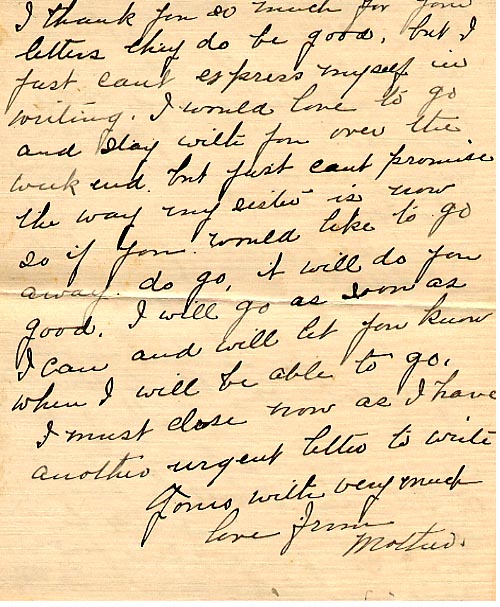 I thank you so much for your
letters they do be good, but I
just cant express myself in
writing. I would love to go
and stay with you over the
week end. but just cant promise
the way my sister is now
so if you would like to go
away. do go, it will do you
good. I will go as soon as
I can and will let you know
when I will be able to go.
I must close now as I have
another urgent letter to write
Yours with very much
love from
Mother.